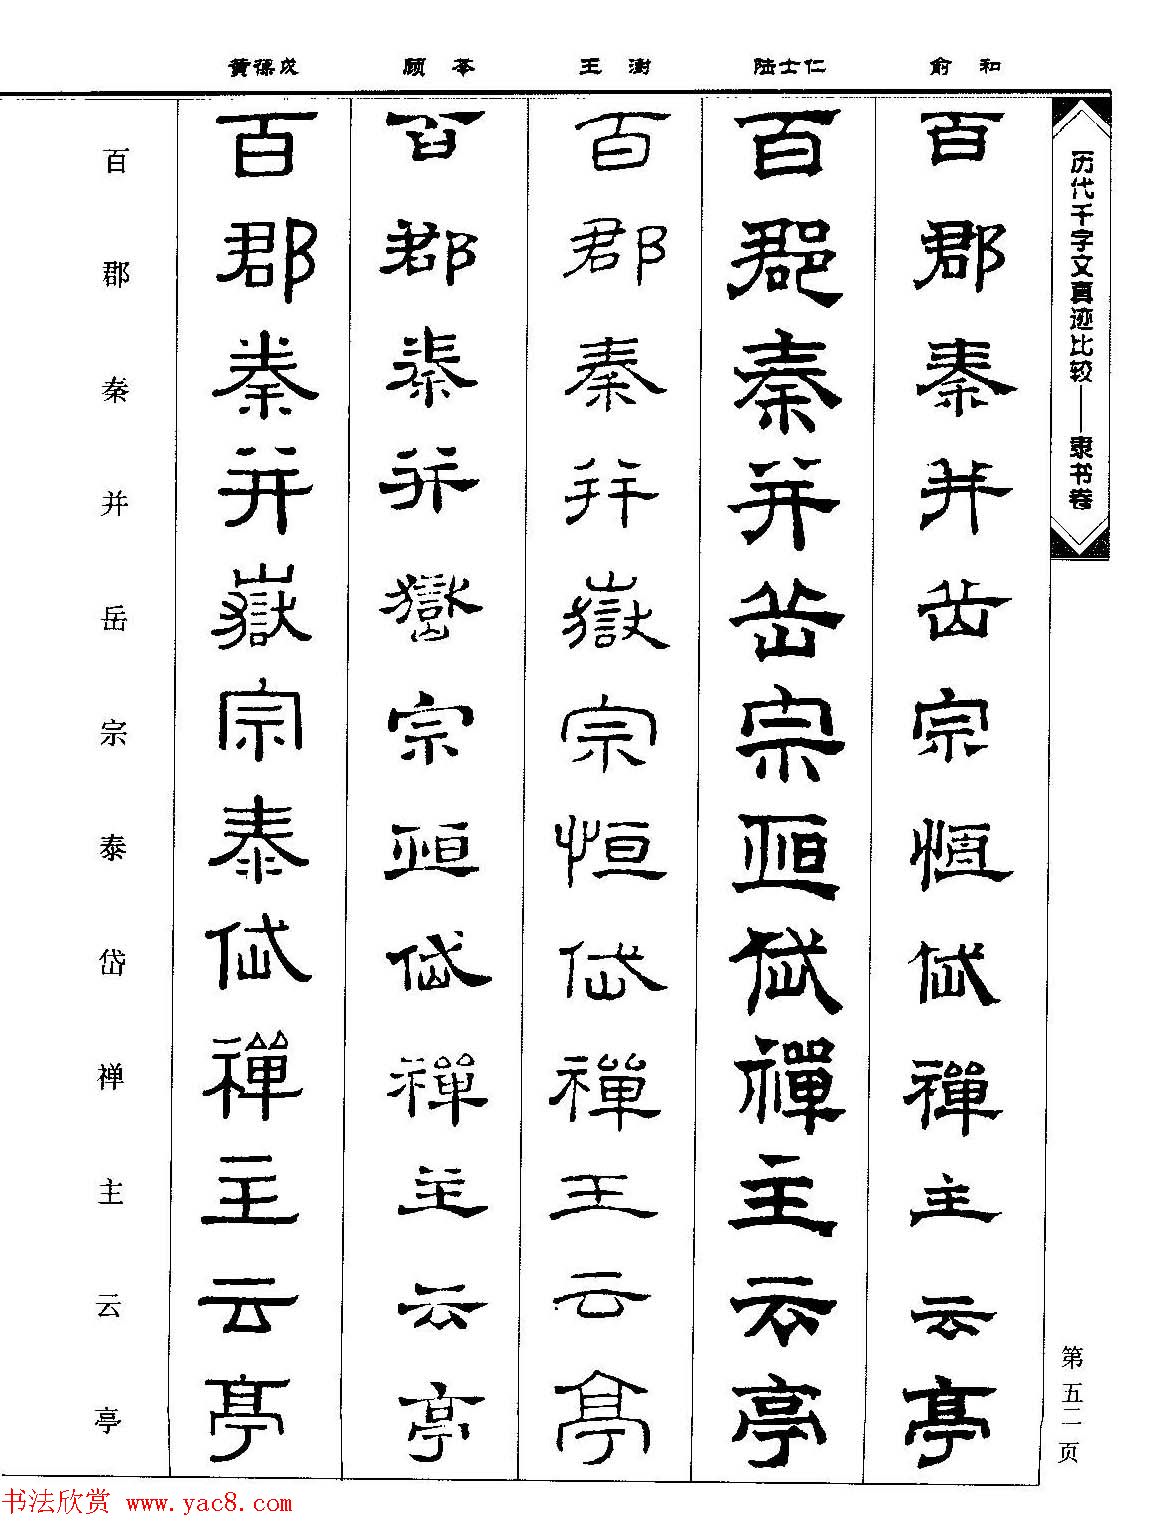 历代千字文真迹比较——隶书卷
第五二页
俞和
百郡秦并岳宗恒岱禅主云亭
陆士仁
百郡秦并岳宗恒岱禪主云亭
王澍
百郡秦并嶽宗恒岱禪主云亭
顾苓
百郡秦并嶽宗恒岱禪主云亭
黄葆戉
百郡秦并嶽宗泰岱禪主云亭
百郡秦并岳宗泰岱禅主云亭
书法欣赏 www.yac8.com